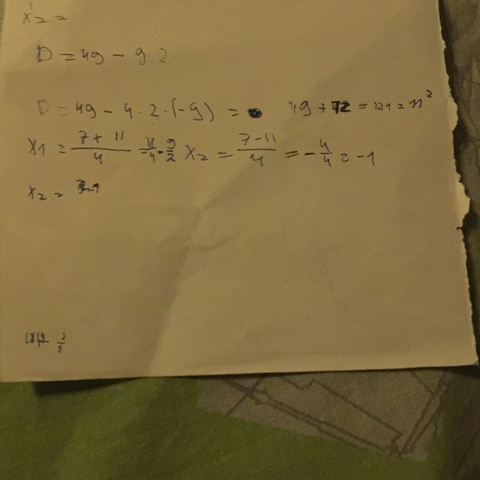 x₂ =
D = 49 - 9.2
D = 49 - 4 · 2 · (-9) = 49 + 72 = 121 = 11²
x₁ = (7 + 11)/4 = 9/2 x₂ = (7 - 11)/4 = -4/4 = -1
x₂ =